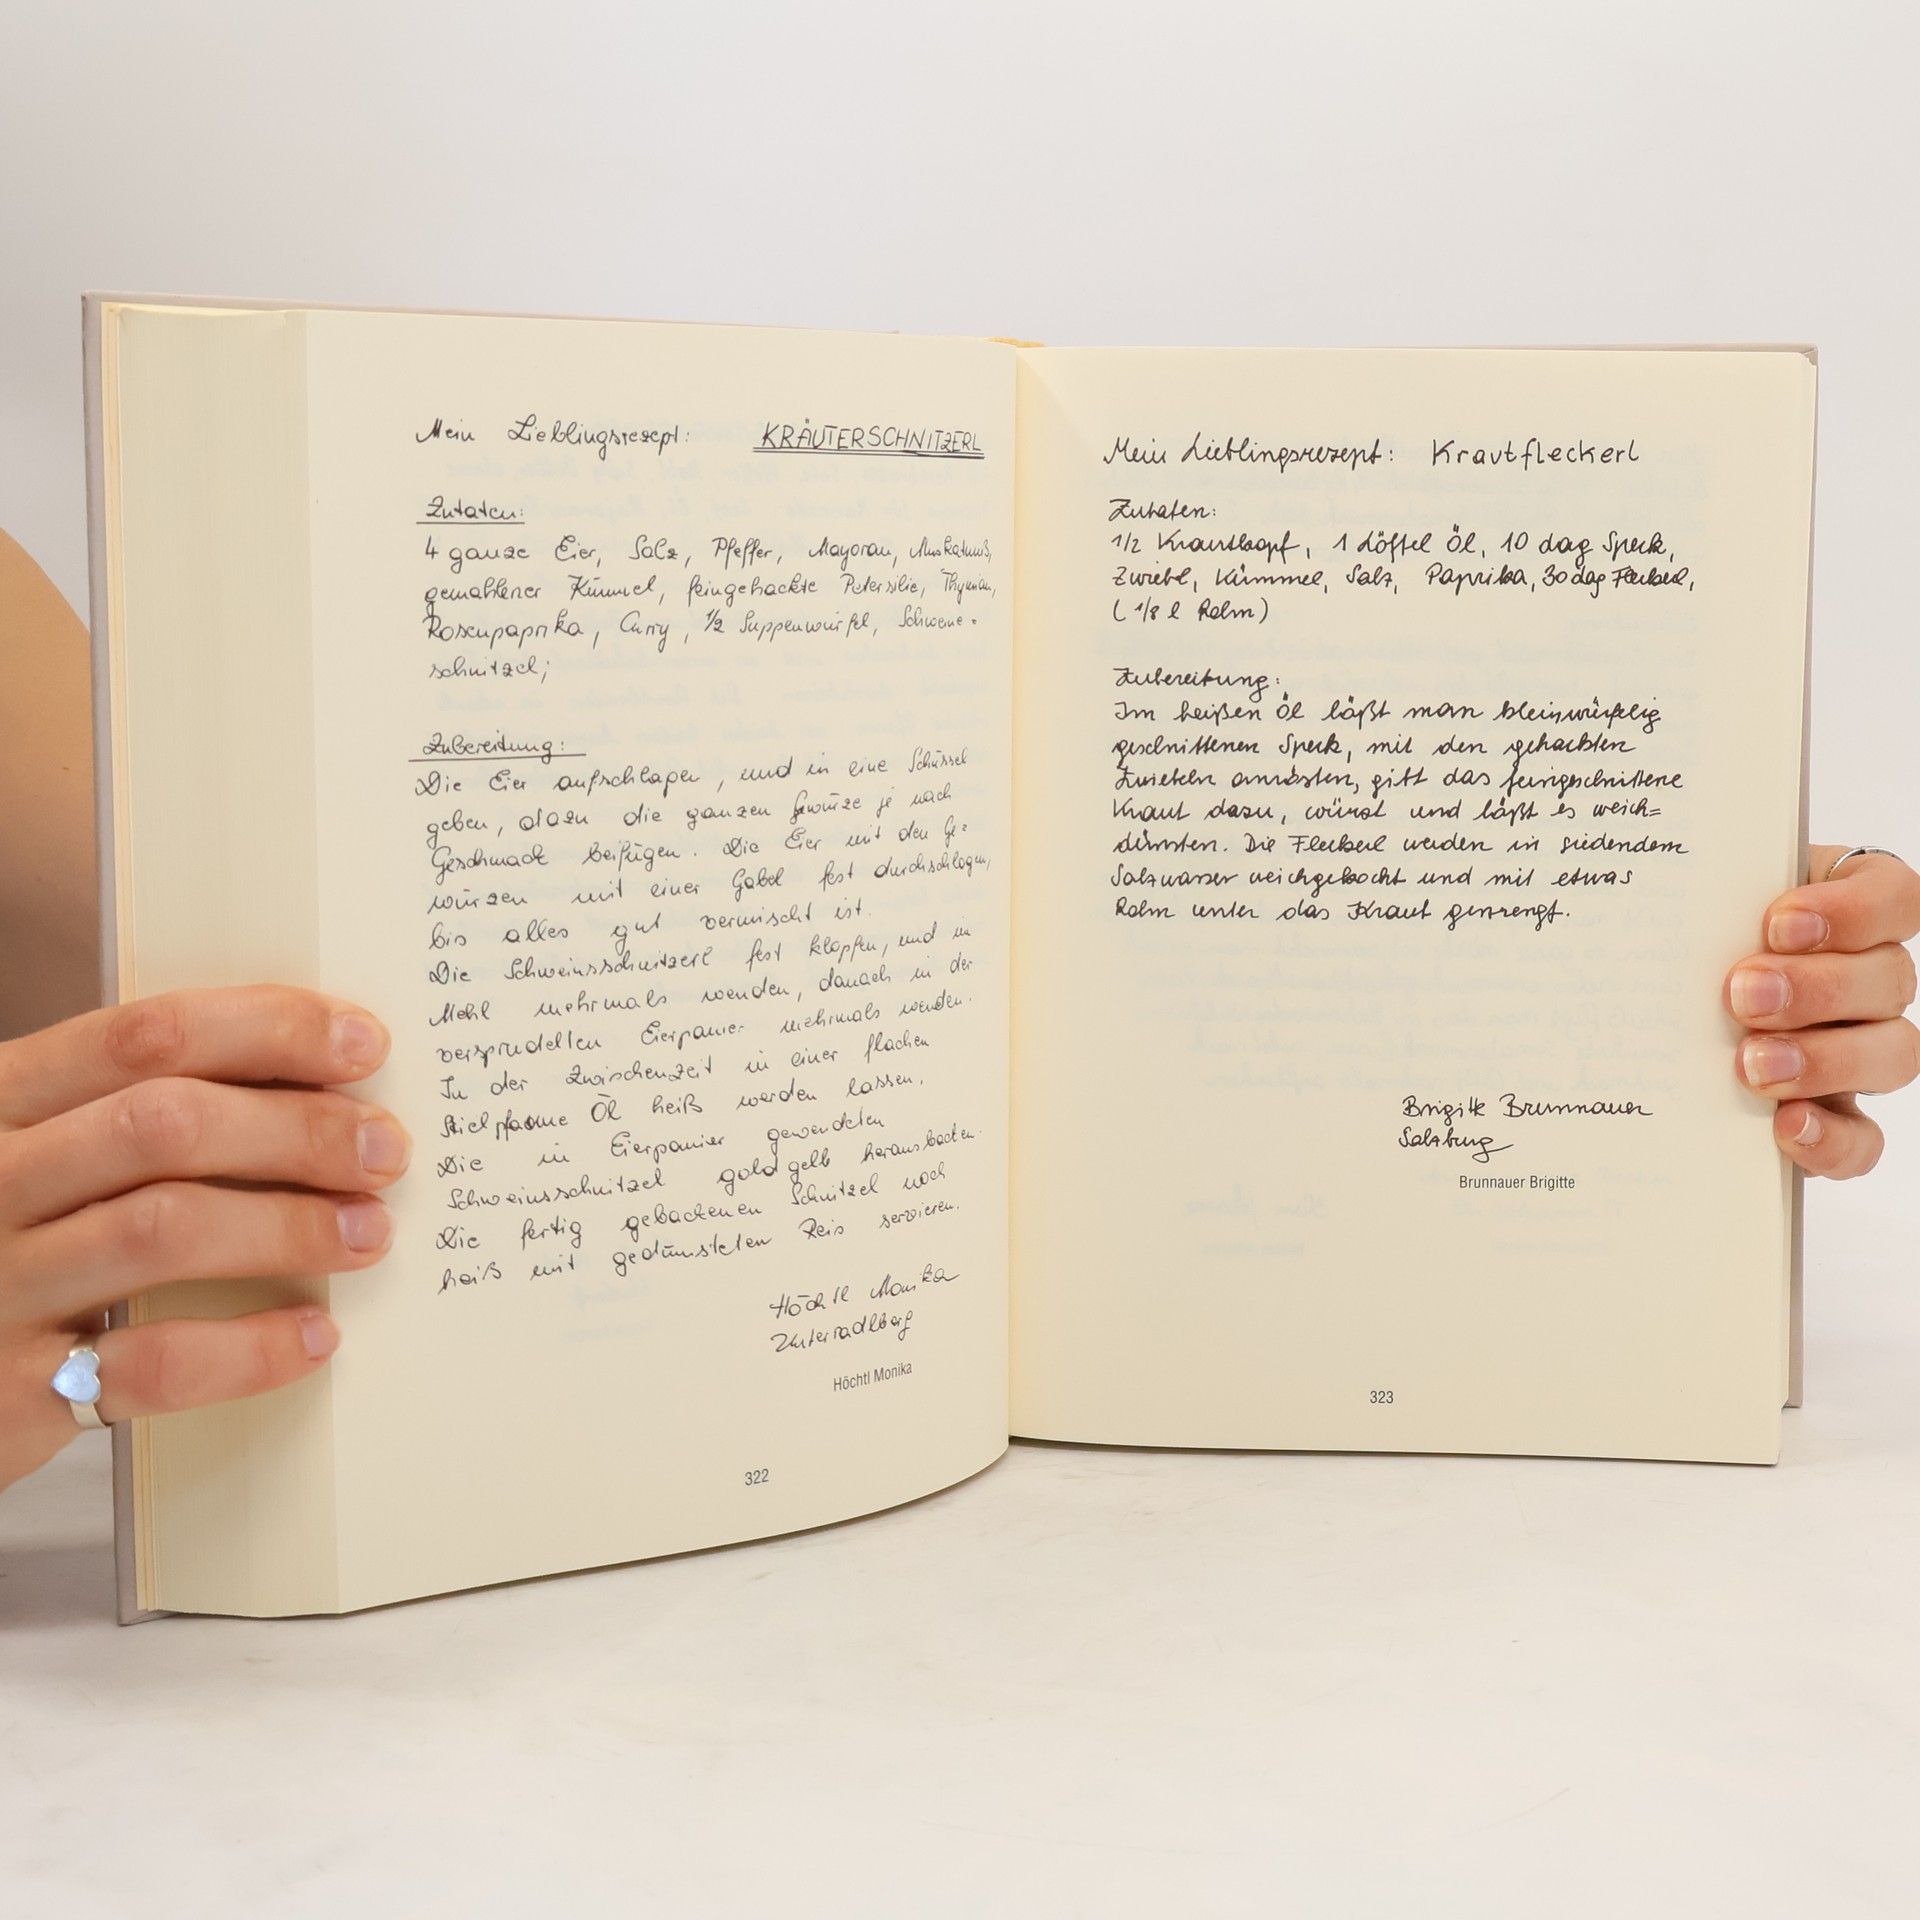 Mein Lieblingsrezept: KRÄUTERSCHNITZERL
Zutaten:
4 ganze Eier, Salz, Pfeffer, Mayoran, Muskatnuß,
gemahlener Kümmel, feingehackte Petersilie, Thymian,
Rosenpaprika, Curry, 1/2 Suppenwürfel, Schweine=
schnitzel;
Zubereitung:
Die Eier aufschlagen, und in eine Schüssel
geben, dazu die ganzen Gewürze je nach
Geschmack beifügen. Die Eier mit den Ge=
würzen mit einer Gabel fest durchschlagen,
bis alles gut vermischt ist.
Die Schweinsschnitzerl fest klopfen, und in
Mehl mehrmals wenden, danach in der
versprudelten Eierpanier mehrmals wenden.
In der Zwischenzeit in einer flachen
Stielpfanne Öl heiß werden lassen.
Die in Eierpanier gewendeten
Schweinsschnitzel goldgelb herausbacken.
Die fertig gebackenen Schnitzel noch
heiß mit gedünsteten Reis servieren.
Höchtl Monika
Unterradlberg
Höchtl Monika
322
Mein Lieblingsrezept: Krautfleckerl
Zutaten:
1/2 Krautkopf, 1 Löffel Öl, 10 dag Speck,
Zwiebel, Kümmel, Salz, Paprika, 30 dag Fleckerl,
(1/8 l Rahm)
Zubereitung:
Im heißen Öl läßt man kleinwürfelig
geschnittenen Speck, mit den gehackten
Zwiebeln anrösten, gibt das feingeschnittene
Kraut dazu, würzt und läßt es weich=
dünsten. Die Fleckerl werden in siedendem
Salzwasser weichgekocht und mit etwas
Rahm unter das Kraut gemengt.
Brigitte Brunnauer
Salzburg
Brunnauer Brigitte
323